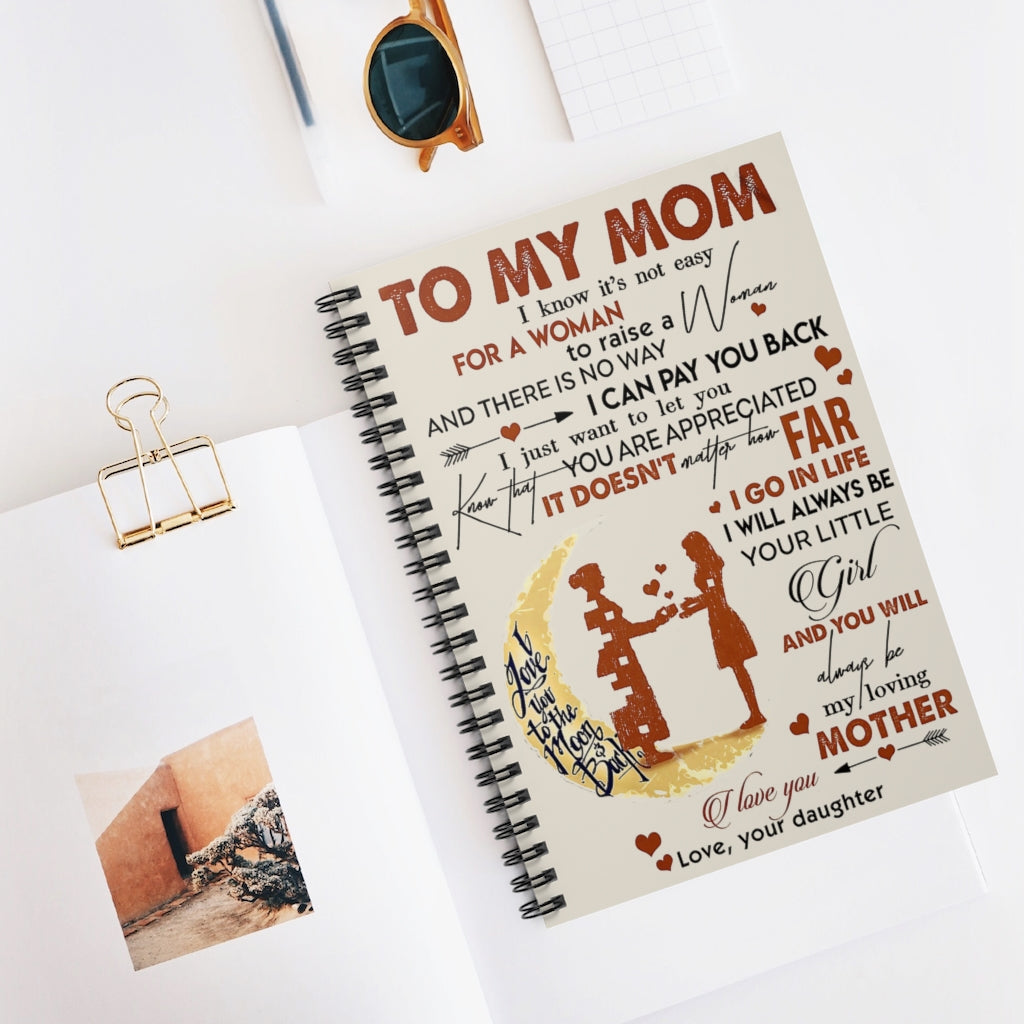 TO MY MOM
I know it's not easy
FOR A WOMAN
to raise a Woman
AND THERE IS NO WAY
I CAN PAY YOU BACK
I just want to let you
Know that YOU ARE APPRECIATED
IT DOESN'T matter how FAR
I GO IN LIFE
I WILL ALWAYS BE
YOUR LITTLE
Girl
AND YOU WILL
always be
my loving
MOTHER
I
Love
You
to the
Moon
&
Back
I love you
Love, your daughter